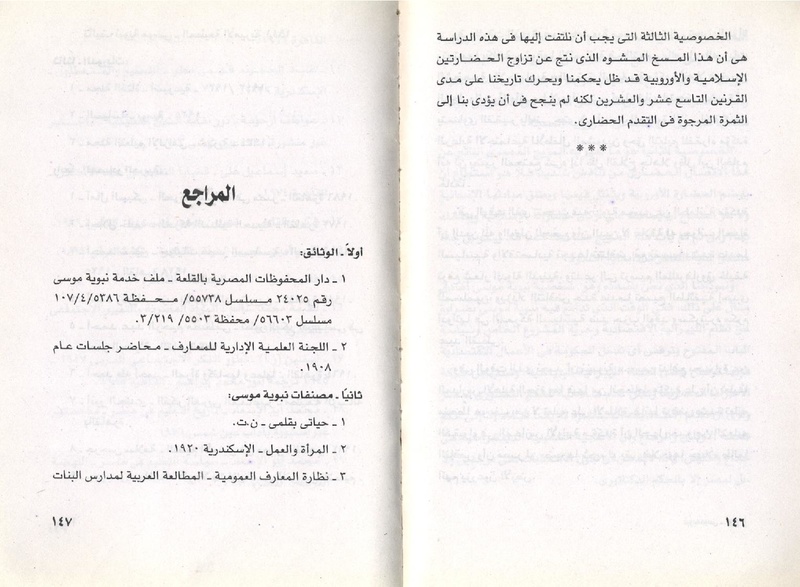 الخصوصية الثالثة التى يجب أن نلتفت إليها فى هذه الدراسة
هى أن هذا المسخ المشوه الذى نتج عن تزاوج الحضارتين
الإسلامية والأوروبية قد ظل يحكمنا ويحرك تاريخنا على مدى
القرنين التاسع عشر والعشرين لكنه لم ينجح فى أن يؤدى بنا إلى
الثمرة المرجوة فى التقدم الحضارى.
***
١٤٦
المراجع
أولاً ـ الوثائق:
١ ـ دار المحفوظات المصرية بالقلعة ـ ملف خدمة نبوية موسى
رقم ٢٤٠٢٥ مسلسل ٥٥٧٣٨/ محفظة ١٠٧/٤/٥٣٨٦
مسلسل ٥٦٦٠٣/ محفظة ٥٥٠٣/ ٣/٢١٩.
٢ ـ اللجنة العلمية الإدارية للمعارف ـ محاضر جلسات عام
١٩٠٨.
ثانيًا ـ مصنفات نبوية موسى:
١ ـ حياتى بقلمى ـ ن.ت.
٢ ـ المرأة والعمل ـ الإسكندرية ١٩٢٠.
٣ ـ نظارة المعارف العمومية ـ المطالعة العربية لمدارس البنات
١٤٧